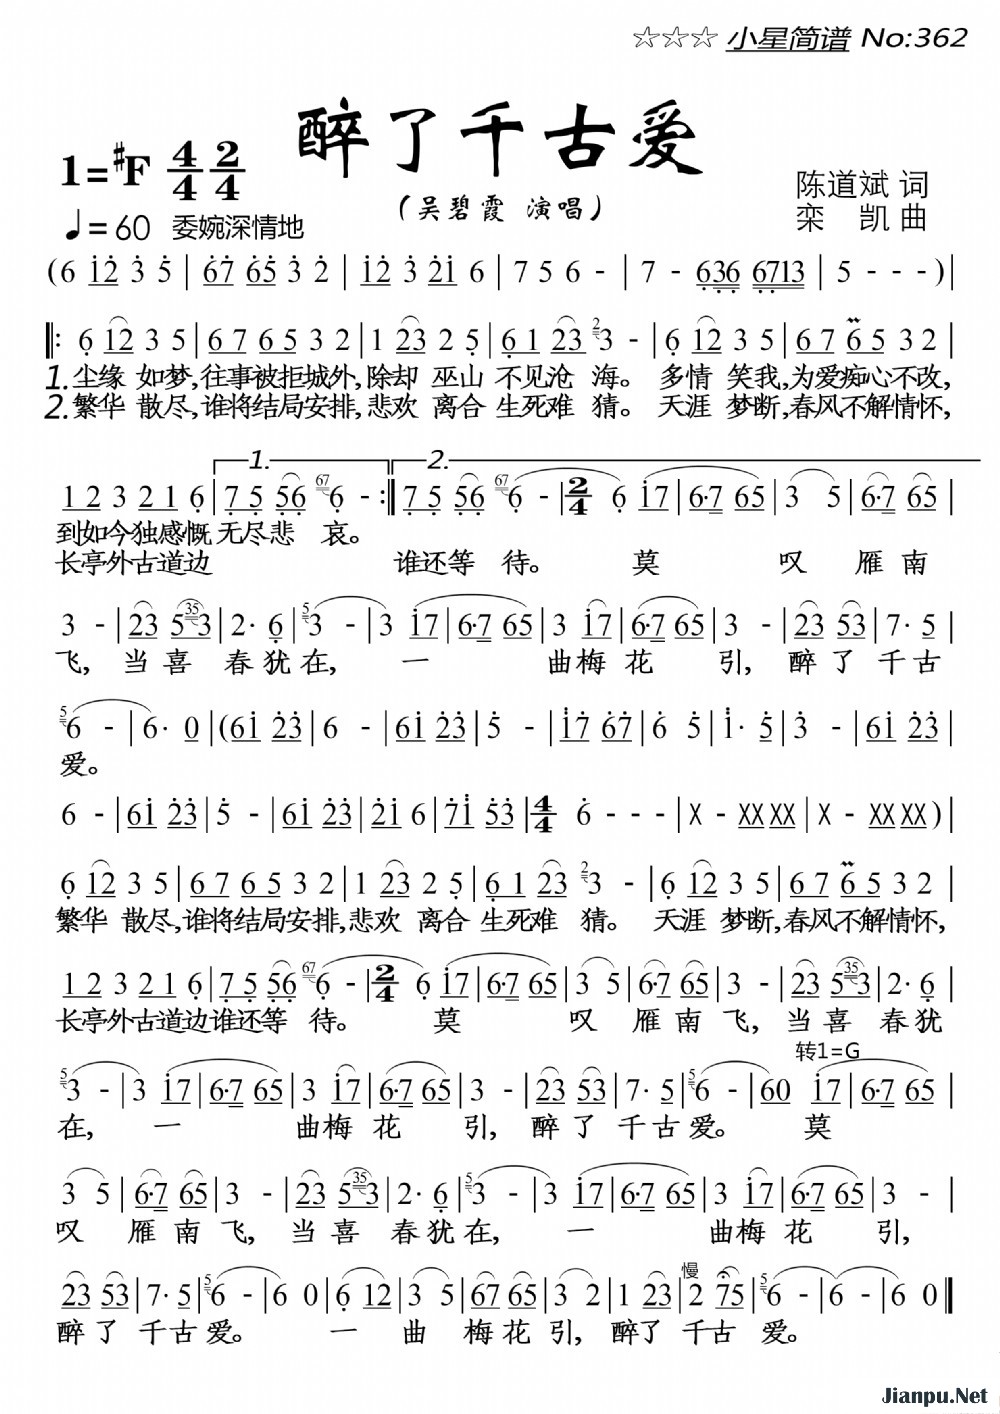 ☆☆☆ 小星简谱 No:362
醉了千古爱
1=#F 4/4 2/4
(吴碧霞 演唱)
陈道斌 词
♩=60 委婉深情地
栾 凯 曲
(6 12 3 5 | 67 65 3 2 | 12 3 21 6 | 7 5 6 - | 7 - 636 6713 | 5 - - -) |
‖: 6 12 3 5 | 6 7 6 5 3 2 | 1 23 2 5 | 6 1 23 2 3 - | 6 12 3 5 | 6 7 6 5 3 2 |
1.尘缘 如梦,往事被拒城外,除却 巫山 不见沧 海。 多情 笑我,为爱痴心不改,
2.繁华 散尽,谁将结局安排,悲欢 离合 生死难 猜。 天涯 梦断,春风不解情怀,
1. 2.
1 2 3 2 1 6 | 7 5 56 67 6 - :‖ 7 5 56 67 6 - | 2/4 6 17 | 6·7 65 | 3 5 | 6·7 65 |
到如今独感慨 无尽悲 哀。
长亭外古道边 谁还等 待。 莫 叹 雁 南
3 - | 23 5 35 3 | 2· 6 | 5 3 - | 3 17 | 6·7 65 | 3 17 | 6·7 65 | 3 - | 23 53 | 7· 5 |
飞, 当 喜 春 犹 在, 一 曲 梅 花 引, 醉 了 千 古
5 6 - | 6· 0 | (61 23 | 6 - | 61 23 | 5 - | 17 67 | 6 5 | 1· 5 | 3 - | 61 23 |
爱。
6 - | 61 23 | 5 - | 61 23 | 21 6 | 71 53 | 4/4 6 - - - | X - XX XX | X - XX XX) |
6 12 3 5 | 6 7 6 5 3 2 | 1 23 2 5 | 6 1 23 2 3 - | 6 12 3 5 | 6 7 6 5 3 2 |
繁华 散尽,谁将结局安排,悲欢 离合 生死难 猜。 天涯 梦断,春风不解情怀,
1 2 3 2 1 6 | 7 5 56 67 6 - | 2/4 6 17 | 6·7 65 | 3 5 | 6·7 65 | 3 - | 23 5 35 3 | 2· 6 |
长亭外古道边谁还等 待。 莫 叹 雁 南 飞, 当 喜 春 犹
转1=G
5 3 - | 3 17 | 6·7 65 | 3 17 | 6·7 65 | 3 - | 23 53 | 7· 5 | 5 6 - | 60 17 | 6·7 65 |
在, 一 曲 梅 花 引, 醉 了 千 古 爱。 莫
3 5 | 6·7 65 | 3 - | 23 5 35 3 | 2· 6 | 5 3 - | 3 17 | 6·7 65 | 3 17 | 6·7 65 | 3 - |
叹 雁 南 飞, 当 喜 春 犹 在, 一 曲 梅 花 引,
慢
23 53 | 7· 5 | 5 6 - | 6 0 | 6 12 | 3 5 | 67 65 | 3 2 | 1 23 | 2 75 | 5 6 - | 6 - | 6 0 ‖
醉 了 千 古 爱。 一 曲 梅 花 引, 醉了 千古 爱。
Jianpu.Net